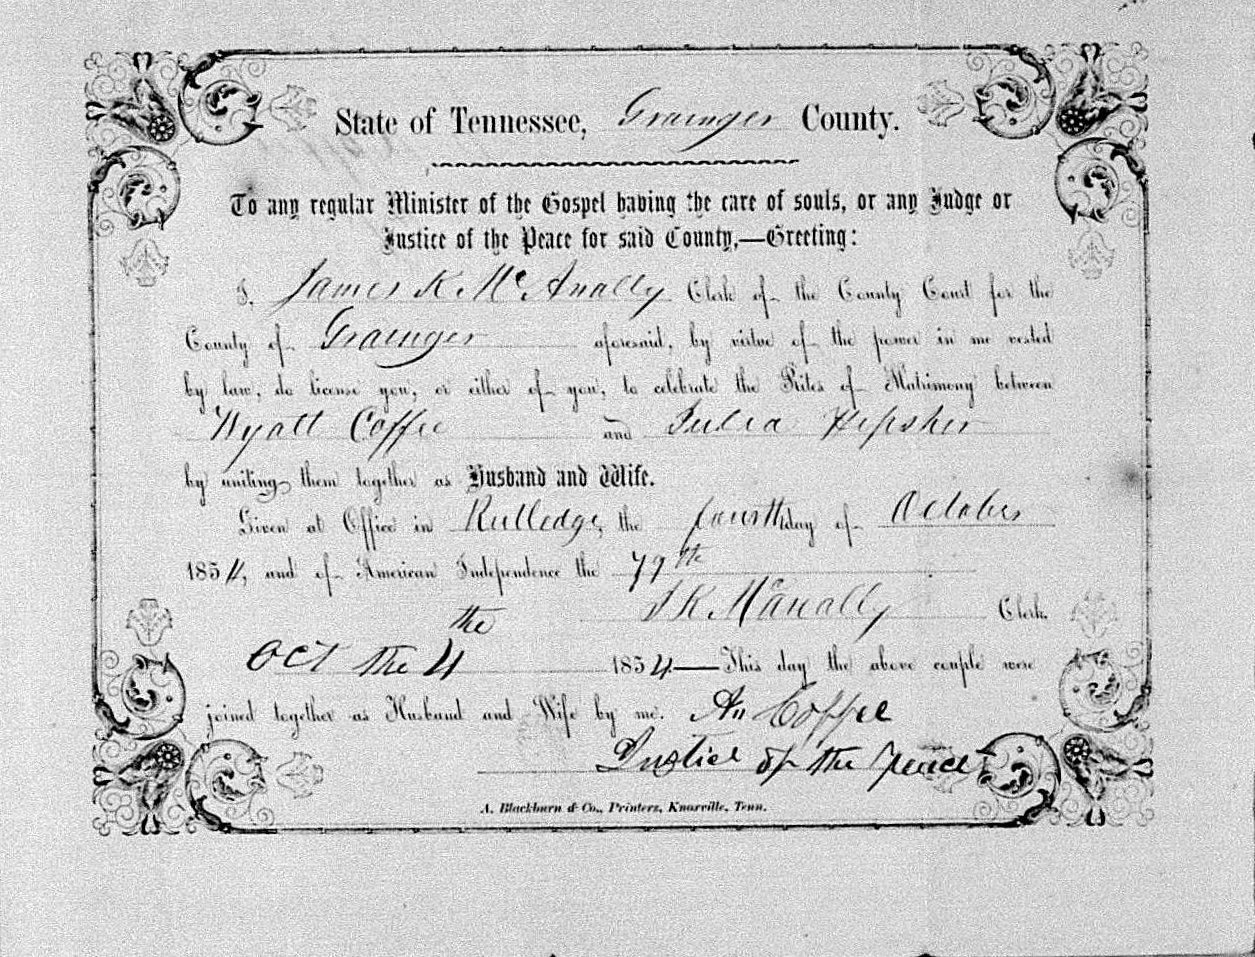 State of Tennessee, Grainger County.
To any regular Minister of the Gospel having the care of souls, or any Judge or
Justice of the Peace for said County,—Greeting:
I, James K McAnally Clerk of the County Court for the
County of Grainger aforesaid, by virtue of the power in me vested
by law, do license you, or either of you, to celebrate the Rites of Matrimony between
Wyatt Coffee and Julia Hipsher
by uniting them together as Husband and Wife.
Given at Office in Rutledge, the fourth day of October
1854, and of American Independence the 79th
J K McAnally Clerk.
the
Oct the 4 1854—This day the above couple were
joined together as Husband and Wife by me. An Coffee
Justice of the Peace
A. Blackburn & Co., Printers, Knoxville, Tenn.